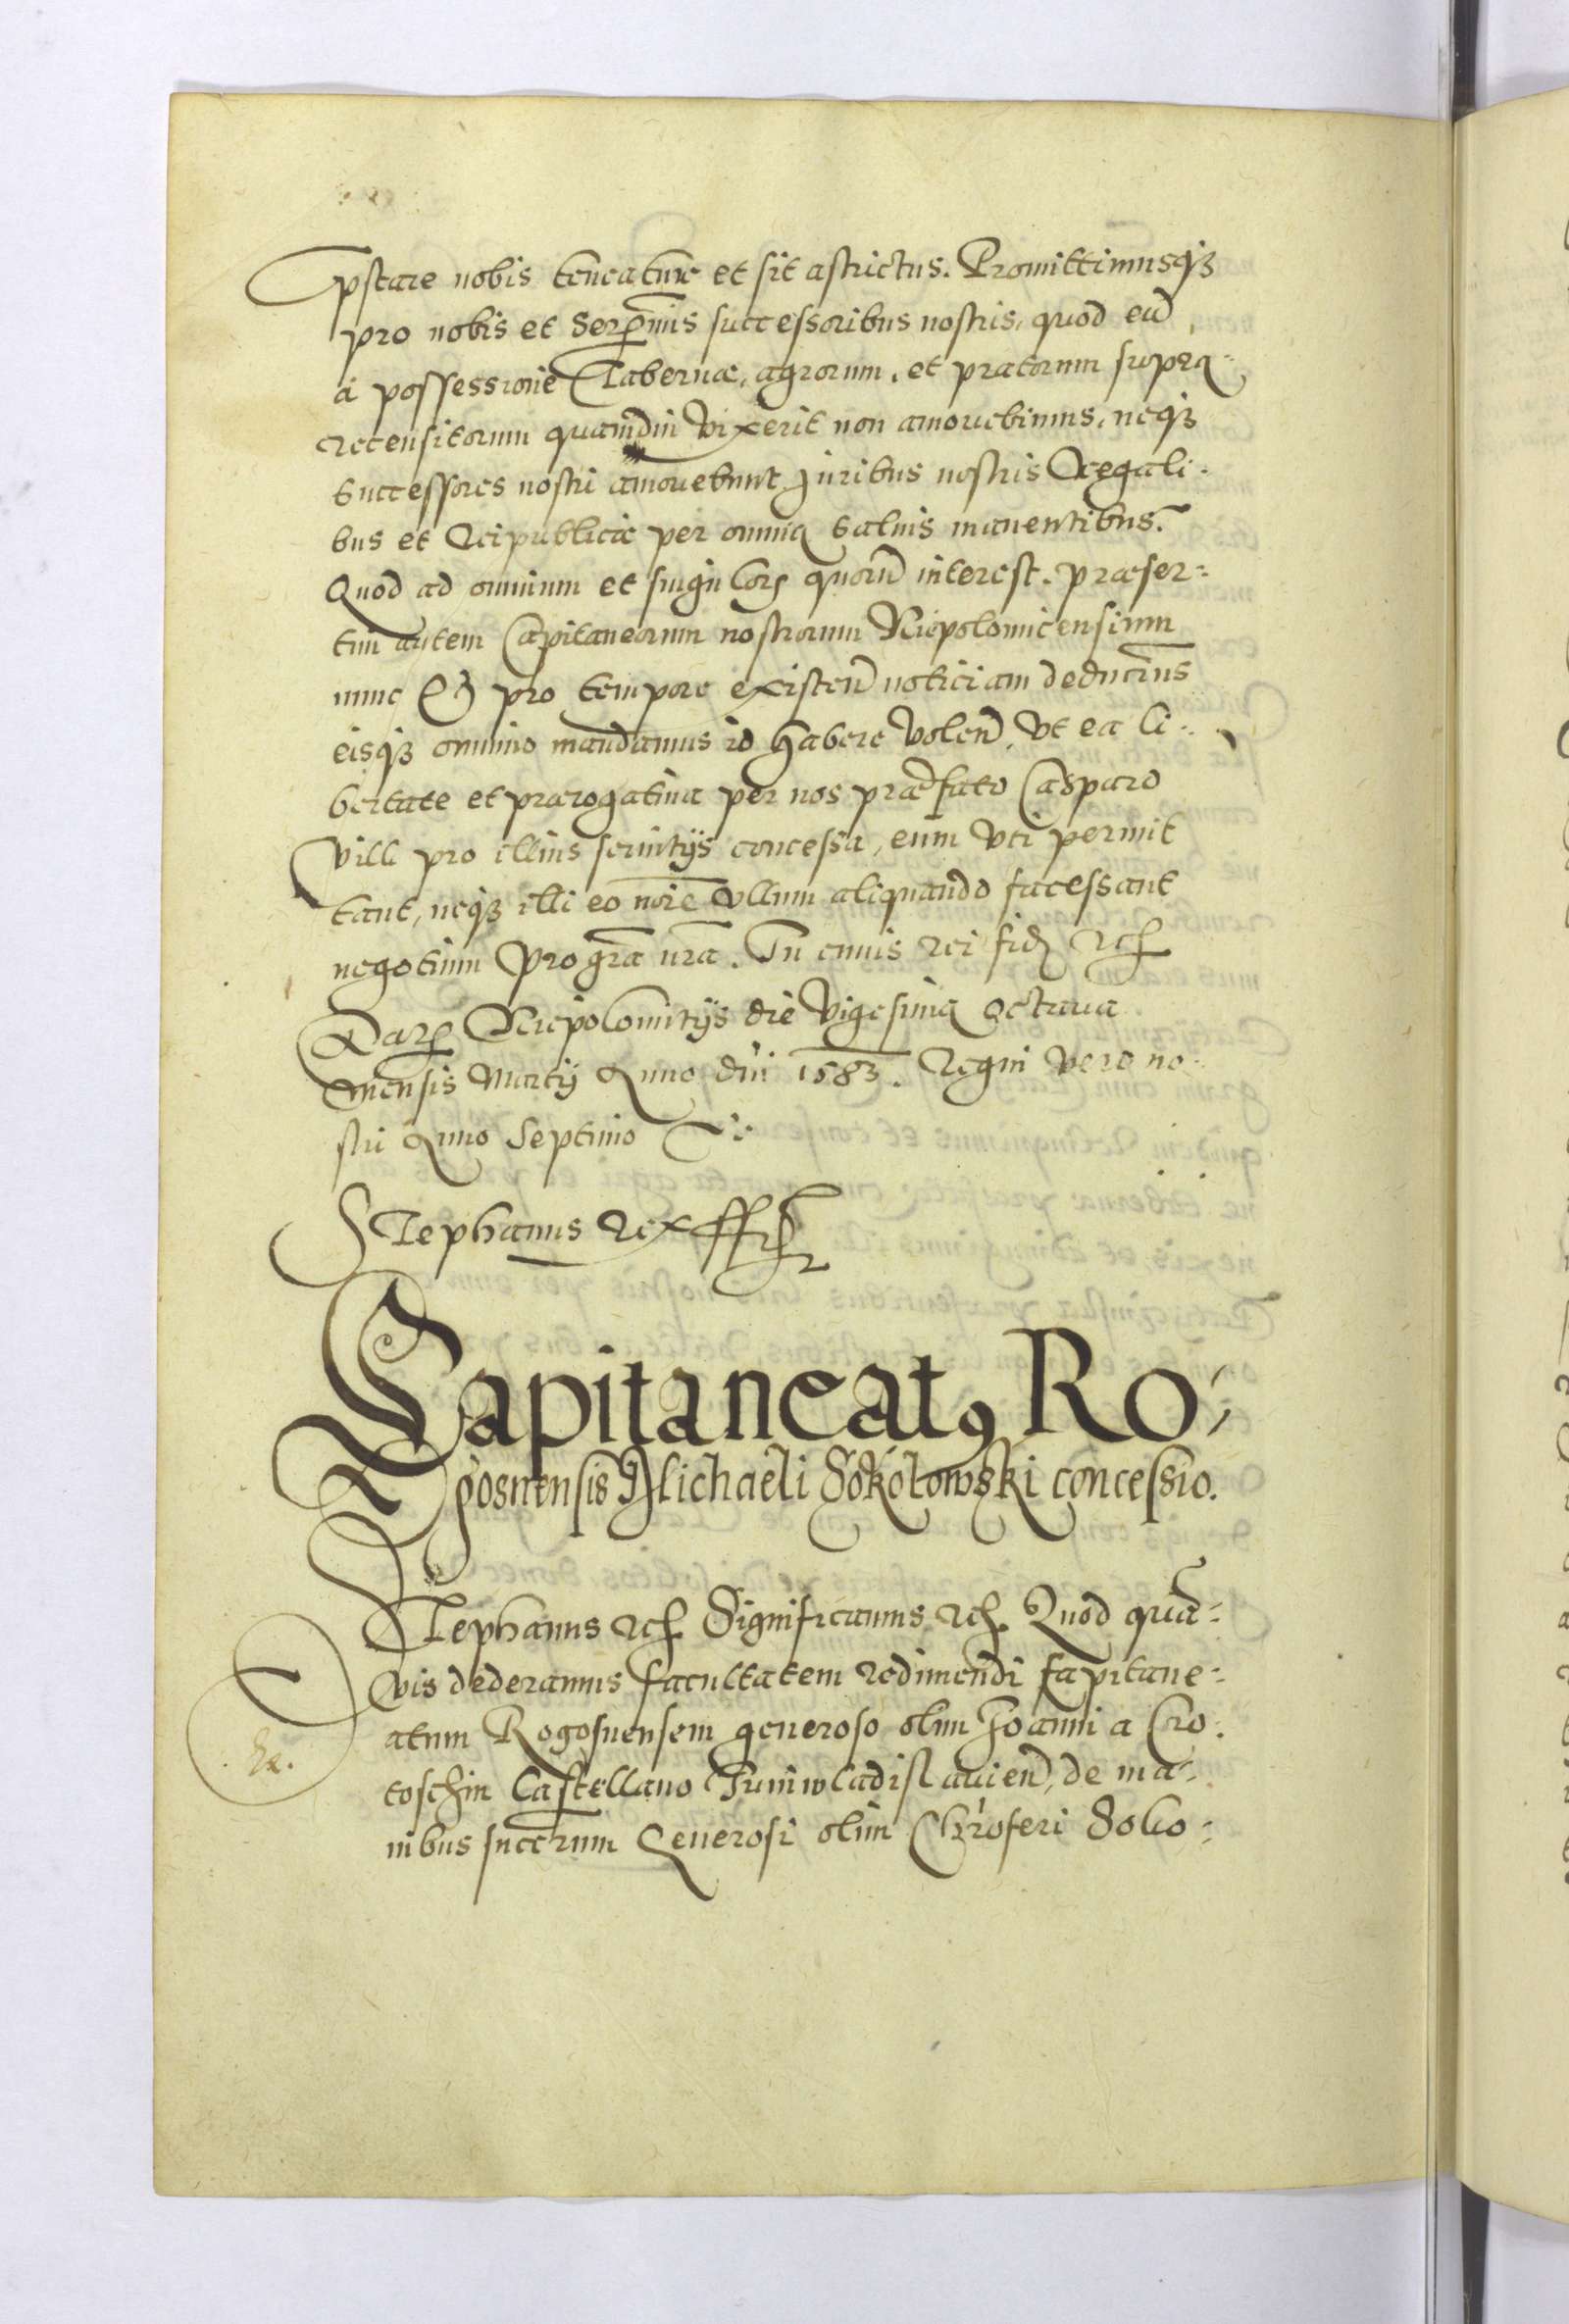 pstare nobis teneatur et sit astrictus. Promittimusqꝫ
pro nobis et Serenmis successoribus nostris, quod eũ
a possessione Tabernæ, agrorum, et pratorum supra-
recensitorum quamdiu vixerit non amouebimus, neqꝫ
Successores nostri amouebunt Juribus nostris Regali-
bus et Reipublicæ per omnia Saluis manentibus.
Quod ad omnium et singulorꝝ quorũ interest. præser-
tim autem Capitaneorum nostrorum Niepolomicensium
nunc et pro tempore existeñ noticiam deducimus
eisqꝫ omnino mandamus id habere voleñ, vt ea li-
bertate et prærogatiua per nos præfato Casparo
Vill pro illius seruitijs concessa, eum vti permit
tant, neqꝫ illi eo noĩe vllum aliquando facessant
negotium pro gr̃a nr̃a. In cuius rei fidẽ etc
Datꝭ Niepolomitijs die Vigesima octaua
mensis Martij Anno dñi 1583. Regni vero no-
stri Anno Septimo
Stephanus Rex sst
Capitaneatꝯ Ro-
gosnensis Michaeli Sokolowski concessio.
Stephanus etc Significamus etc. Quod quã-
vis dederamus facultatem redimendi Capitane-
atum Rogosnensem generoso olim Joanni a Cro-
toschin Castellano Juniwladislauieñ, de ma-
nibus succr̃um Generosi olim Chr̃oferi Soko-